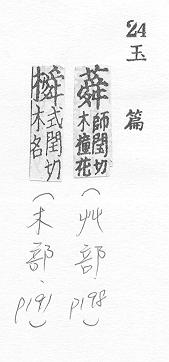 24 玉篇
蕣 師閏切 木槿花 (艸部 p198)
橓 式閏切 木名 (木部、p191)